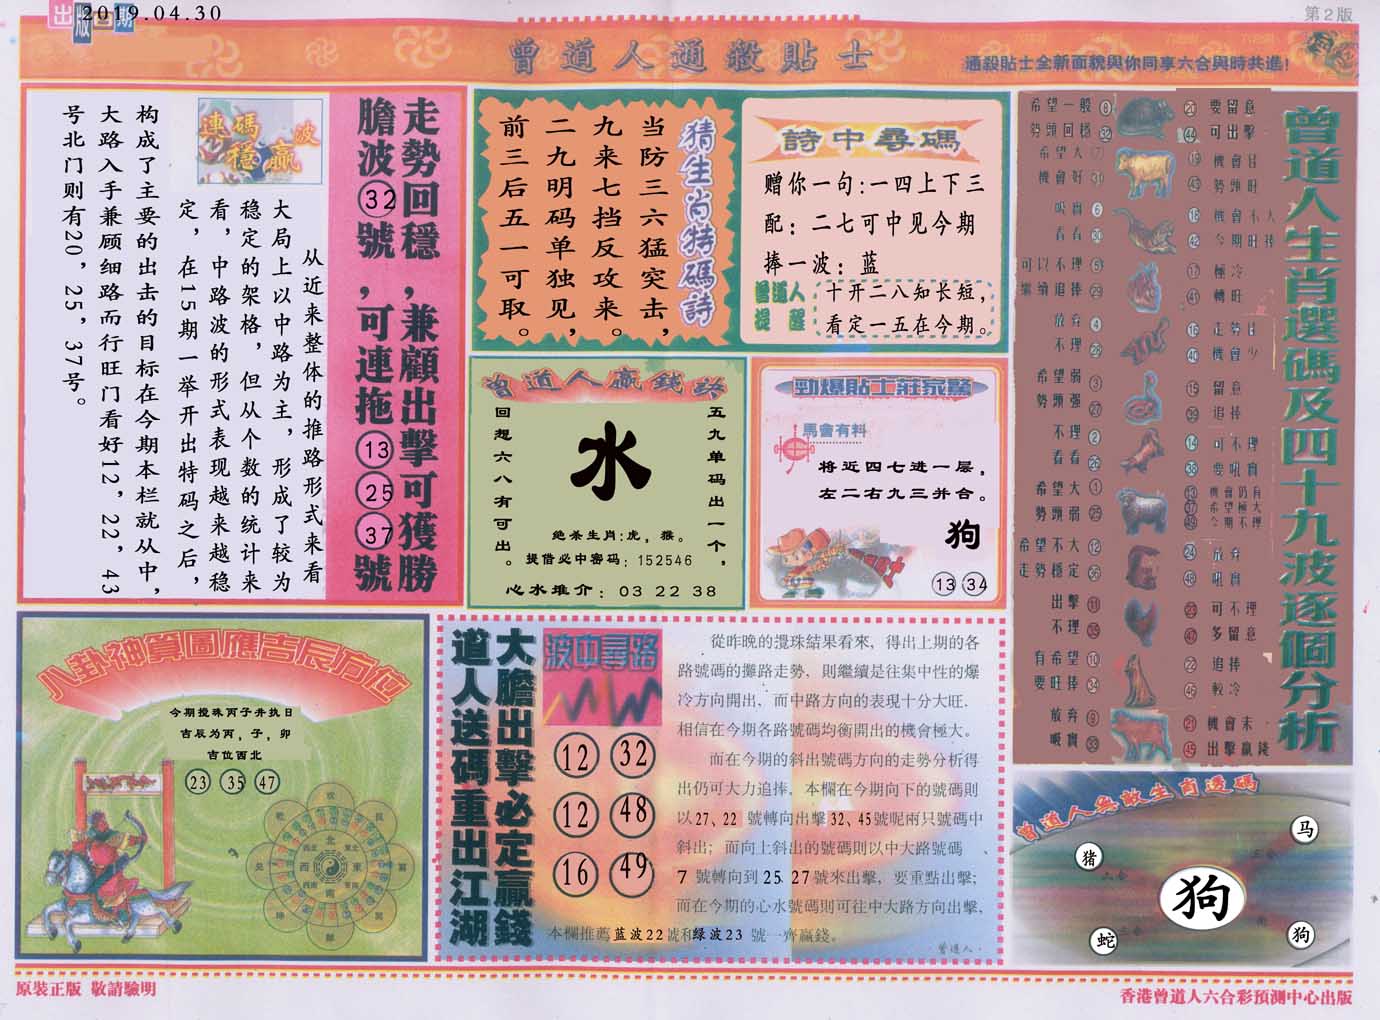 出版日期
2019.04.30
第2版
曾道人通殺貼士
通殺貼士全新面貌與你同享六合與時共進!
走勢回穩,兼顧出擊可獲勝
膽波32號,可連拖13 25 37號
連碼穩贏波
从近来整体的推路形式来看
大局上以中路为主，形成了较为
稳定的架格，但从个数的统计来
看，中路波的形式表现越来越稳
定，在15期一举开出特码之后，
构成了主要的出击的目标在今期本栏就从中，
大路入手兼顾细路而行旺门看好12，22，43
号北门则有20，25，37号。
猜生肖特碼詩
当防三六猛突击，
九来七挡反攻来。
二九明码单独见，
前三后五一可取。
詩中尋碼
赠你一句:一四上下三
配：二七可中见今期
捧一波：蓝
曾道人提醒
十开二八知长短，
看定一五在今期。
曾道人生肖選碼及四十九波逐個分析
希望一般
勢頭回穩 32
20 要留意
44 可出擊
希望大
機會好
19
43 勢頭旺
吸實 6
看看 30
18 機會不大
42 今期旺捧
可以不理 5
繼續追捧 29
17 極冷
41 轉旺
放弃 4
不理
16
40 機會少
希望弱 3
勢頭强 27
15 留意
39 追捧
不理 2
看看 26
14 可不理
38 要吼實
希望大 1
勢頭弱 25
13 機會仍有
37 希望極大
49 今期不理
希望不大 12
走勢穩定 36
24 放弃
48 吼實
出擊 11
不理 35
23 可不理
47 多留意
有希望 10
要旺捧 34
22 追捧
46 較冷
放弃 9
吸實 33
21 機會未
45 出擊贏錢
曾道人贏錢詩
五九单码出一个，
回想六八有可出。
水
绝杀生肖:虎，猴。
提借必中密码：152546
心水推介：03 22 38
勁爆貼士莊家驚
馬會有料
将近四七进一层，
左二右九三并合。
狗
13 34
八卦神算圖應吉辰方位
今期搅珠丙子井执日
吉辰为丙，子，卯
吉位西北
23 35 47
北
西 東
南
大膽出擊必定贏錢
道人送碼重出江湖
波中尋路
12 32
12 48
16 49
從昨晚的攪珠結果看來，得出上期的各
路號碼的攤路走勢，則繼續是往集中性的爆
冷方向開出，而中路方向的表現十分大旺.
相信在今期各路號碼均衡開出的機會極大。
而在今期的斜出號碼方向的走勢分析得
出仍可大力追捧，本欄在今期向下的號碼則
以27、22 號轉向出擊32、45號呢兩只號碼中
斜出；而向上斜出的號碼則以中大路號碼、
7 號轉向到25 27號來出擊，要重點出擊；
而在今期的心水號碼則可往中大路方向出擊，
本欄推薦蓝波22號和绿波23 號一齊贏錢。
曾道人·
曾道人無敵生肖透碼
马
猪
六合
狗
蛇
狗
原裝正版 敬請驗明
香港曾道人六合彩預測中心出版